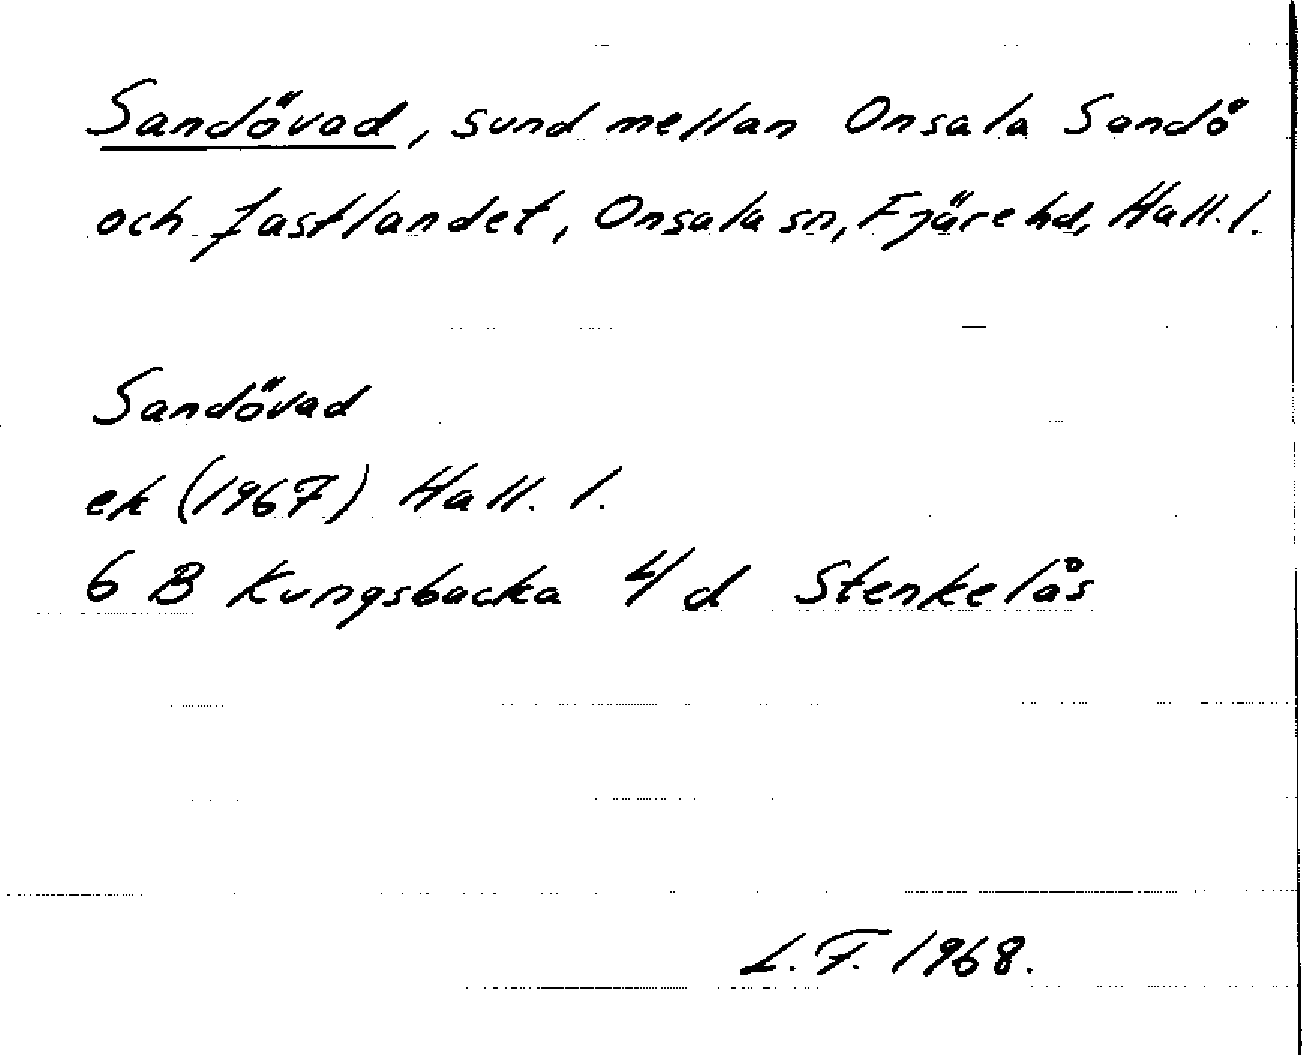 Sandövad, sund mellan Onsala Sandö
och fastlandet, Onsala sn, Fjäre hd, Hall. l.
Sandövad
ek (1967) Hall. l.
6 B Kungsbacka 4 d Stenkelås
L. F. 1968.